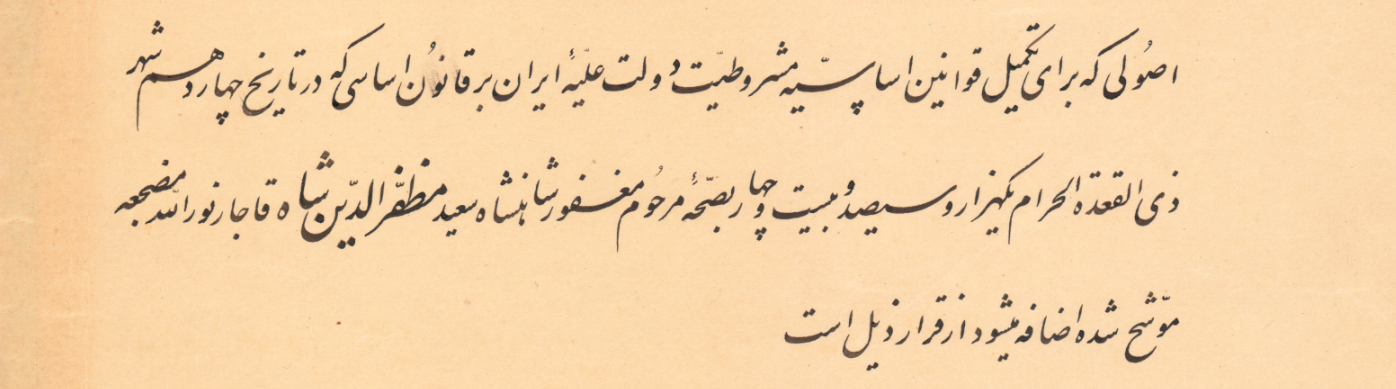 اصُولی که برای تکمیل قوانین اساسیّه مشروطیّت دولت علیّهٔ ایران بر قانُون اساسی که در تاریخ چهاردهم شهر
ذی القعدة الحرام یکهزار و سیصد و بیست و چهار بصحّهٔ مرحُوم مغفور شاهنشاه سعید مظفّر الدّین شاه قاجار نور الله مضجعه
موّشح شده اضافه میشود از قرار ذیل است